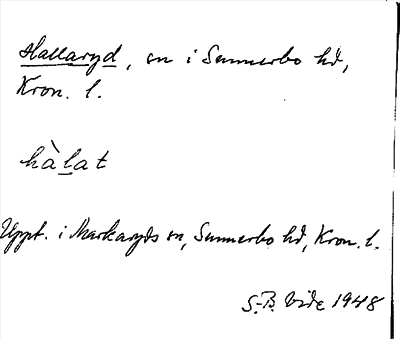 Hallaryd, sn i Sunnerbo hd,
Kron. l.
hàlat
Uppt. i Markaryds sn, Sunnerbo hd, Kron. l.
S.-B. Vide 1948